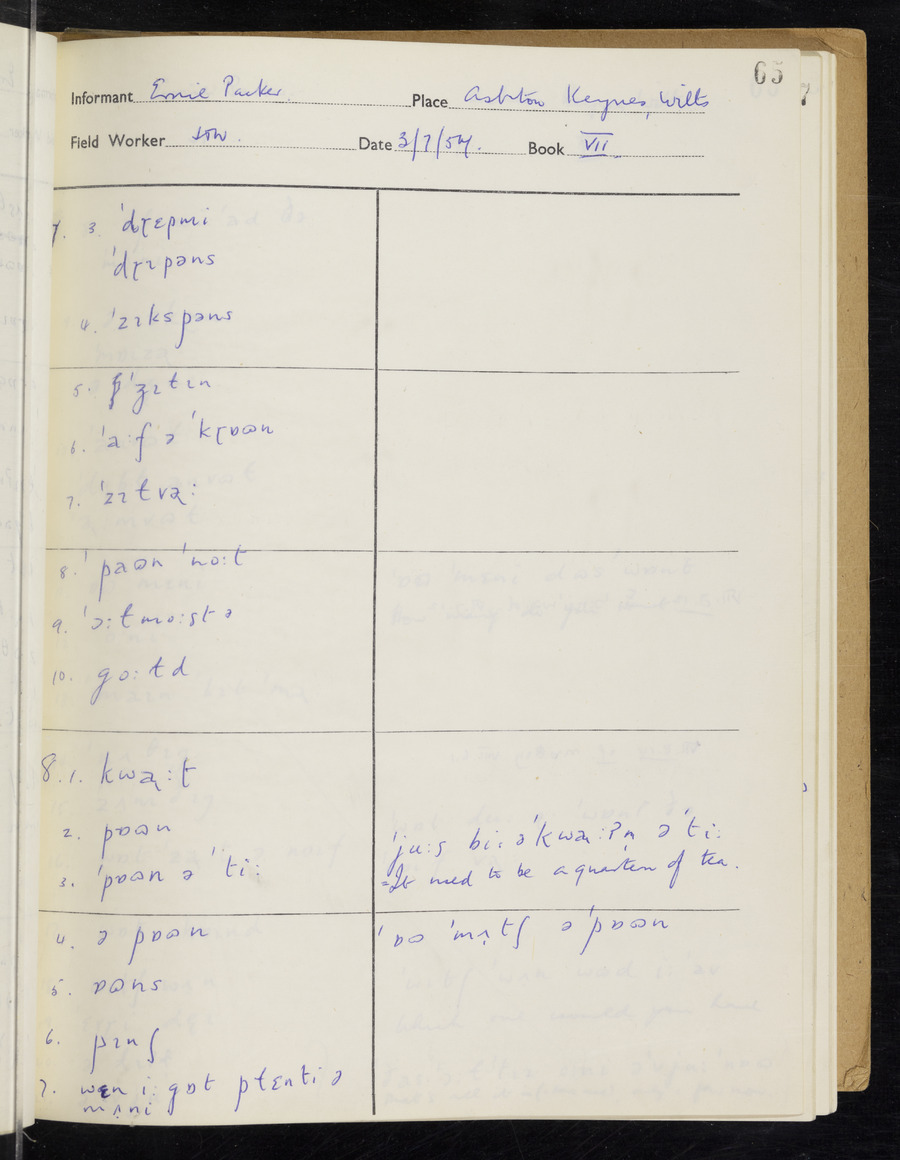 65
Informant Ernie Packer Place Ashton Keynes, Wilts
Field Worker Date 3/7/54. Book VII
7. 3. ˈdɽɛpmi
ˈdɽɪpəns
4. ˈzɪkspəns
5. ˈʒɪtɪn
6. ˈaːf ə ˈkɽɒʊn
7. ˈzɪtvəɽː
8. ˈpaʊn ˈnoːt
9. ˈɔːtmoːstə
10. goːtd
8. 1. kwaɽːt
2. pɒʊn
3. ˈpɒʊn ə ˈtiː
ˈjuːs biː ə ˈkwaːʔn̩ ə ˈtiː
= It used to be a quartern of tea.
4. ə pɒʊn
ˈɒʊ ˈmʌtʃ ə ˈpɒʊn
5. ɒʊns
6. pɪnʃ
7. wɛn iː gɒt plɛnti ə
mʌni